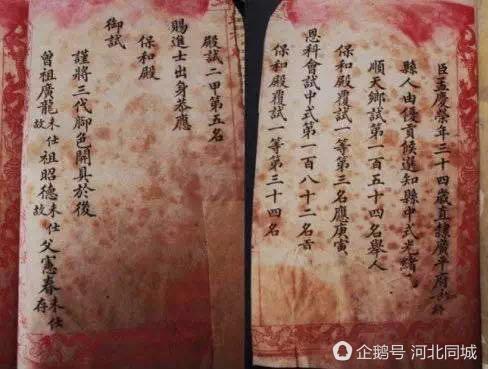 臣孟慶榮年三十四歲直隸廣平府
縣人由優貢候選知縣中式光緒
順天鄉試第一百五十四名舉人
保和殿覆試一等第三名應庚寅
恩科會試中式第一百八十二名
保和殿覆試一等第三十四名
殿試二甲第五名
賜進士出身恭應
保和殿
御試
謹將三代腳色開具於後
曾祖廣龍未仕故祖昭德未仕故父憲春未仕存
企鹅号 河北同城